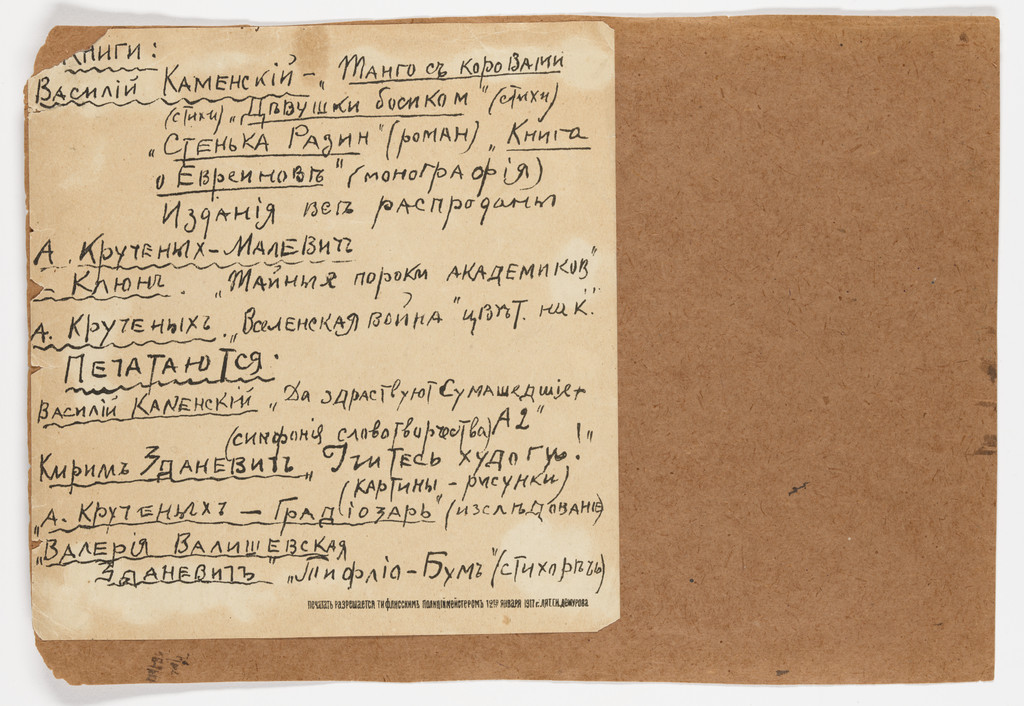 Книги:
Василій Каменскій – „Танго съ коровами
(стихи) „Дѣвушки босиком" (стихи)
„Стенька Разин" (роман) „Книга
о Евреиновѣ" (монографія)
Изданія всѣ распроданы
А. Крученых-Малевичъ
– Клюнъ. „Тайныя пороки академиков"
А. Крученыхъ. „Вселенская война" цвѣт. на к."
Печатаются:
Василій Каменскій „Да здраствуют Сумашедшіе
(симфонія словотворчества) А2"
Кирилъ Зданевичъ „Учитесь худоги!"
(картины – рисунки)
„А. Крученыхъ – Градіозарь" (изслѣдование)
„Валерія Валишевская
Зданевичъ" „Тифліо-Бумъ" (стихорѣчь)
печатать разрешается тифлисскимъ полиціймейстеромъ января 1917 г. лит. Ги. Демурова